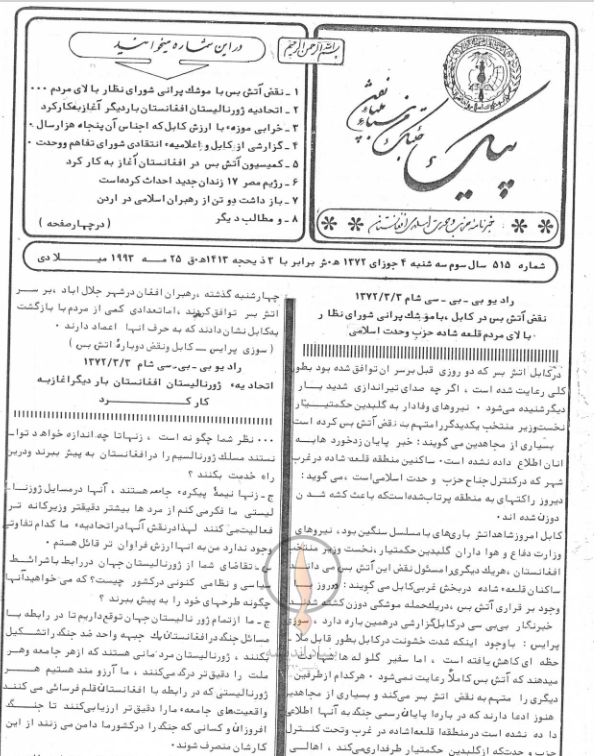 بسم الله الرحمن الرحیم
در این شماره میخوانید
۱ - نقض آتش بس با موشک پرانی شورای نظار با لای مردم ۰۰۰
۲ - اتحادیه ژورنالیستان افغانستان باردیگر آغاز بکار کرد
۳ - خرابی موزهء با ارزش کابل که اجناس آن پنجاه هزار سال ۰۰
۴ - گزارشی از کابل و اعلامیهء انتقادی شورای تفاهم ووحدت ۰
۵ - کمیسیون آتش بس در افغانستان آغاز به کار کرد
۶ - رژیم مصر ۱۷ زندان جدید احداث کرده است
۷ - بازداشت دو تن از رهبران اسلامی در اردن
۸ - و مطالب دیگر
( درچهارصفحه )
پیک
خبرنامه حزب وحدت اسلامی افغانستان
شماره ۵۱۵ سال سوم سه شنبه ۴ جوزای ۱۳۷۲ ه۰ش برابر با ۳ ذیحجه ۱۴۱۳ه۰ق ۲۵ مه ۱۹۹۳ میلادی
رادیو بی - بی - سی شام ۱۳۷۲/۳/۳
نقض آتش بس در کابل ،باموشک پرانی شورای نظار
با لای مردم قلعه شاده حزب وحدت اسلامی ۰
درکابل اتش بس که دو روزی قبل برسر ان توافق شده بود بطور
کلی رعایت شده است ، اگر چه صدای تیراندازی شدید بار
دیگرشنیده میشود ۰ نیروهای وفادار به گلبدین حکمتیار
نخست وزیر منتخب یکدیگر را متهم به نقض آتش بس کرده است
بسیاری از مجاهدین می گویند : خبر پایان زدخورد هابه
انان اطلاع داده نشده است۰ ساکنین منطقه قلعه شاده درغرب
شهر که درکنترل جناح حزب و حدت اسلامی است ،می گوید :
دیروز راکتهای به منطقه پرتاب شده است که باعث کشه شدن
دوزن شده اند۰
کابل امروز شاهد اتش باری های با مسلسل سنگین بود، نیروهای
وزارت دفاع و هوا داران گلبدین حکمتیار ،نخست وزیر منتخب
افغانستان ،هریک دیگری را مسئول نقض این آتش بس می دانند
ساکنان قلعهء شاده دربخش غربی کابل می گویند : دیروز با
وجود بر قراری آتش بس ،دریک حمله موشکی دوزن کشته شدند
خبرنگار بی بی سی درکابل گزارشی درهمین باره دارد ، سوزی
پرایس : باوجود اینکه شدت خشونت درکابل بطور قابل ملا -
حظه ای کاهش یافته است ، اما سفیر گلوله ها شهادت
میدهند که آتش بس کاملاً رعایت نمی شود ۰ هرکدام از طرفین
دیگری را متهم به نقض اتش بس میکند و بسیاری از مجاهدین
هنوز ادعا دارند که در بارهء پایان رسمی جنگ به آنها اطلاعی
دا ده نشده است درمنطقهء قلعه شاده در غرب وتحت کنترل
حزب وحدت که ازگلبدین حکمتیار طرفداری می کند ، اهالی
چهارشنبه گذشته ،رهبران افغان درشهر جلال اباد ،بر سر
اتش بس توافق کردند ،اما تعدادی کمی از مردم با بازگشت
به کابل نشان دادند که به حرف انها اعتماد دارند ۰
( سوزی پرایس ــ کابل ونقض دوبارهٔ اتش بس )
رادیو بی - بی - سی شام ۱۳۷۲/۳/۳
اتحادیهء ژورنالیستان افغانستان بار دیگر آغاز به
کار کــــرد
۰۰۰ نظر شما چگونه است ، زنها تا چه اندازه خواهد توا -
نستند مسلک ژورنالیسم را درافغانستان به پیش ببرند ودرین
راه خدمت بکنند ؟
ج - زنها نیمهٔ پیکرهء جامعه هستند ، آنها درمسایل ژورنا -
لیستی ما فکرمی کنم از مرد ها بیشتر دقیقتر وزیرکانه تر
فعالیت می کنند لهذا درنقش آنها دراتحادیهء ما کدام تفاوتی
وجود ندارد من به انها ارزش فراوان تر قائل هستم ۰
س - تقاضای شما از ژورنالیستان جهان دررابط با شرائط
سیاسی و نظامی کنونی درکشور چیست؟ که می خواهید آنها
چگونه طرحهای خود را به پیش ببرند ؟
ج - ما از تمام ژورنالیستان جهان توقع داریم تا در رابطه با
مسائل جنگ درافغانستان یک جبهه واحد ضد جنگ را تشکیل
بکنند ، ژورنالیستان مردمانی هستند که ازهر جامعه وهر
ملت را دقیق تر درک می کنند ، ما آرزو مند هستیم هر
ژورنالیستی که در رابطه با افغانستان قلم فرسائی می کنند
واقعیت های جامعهء ما را دقیق تر ارزیابی کنند تا جنگ
افروزان و کسانی که جنگ را درکشورما دامن می زنند از این
کارشان منصرف شوند۰